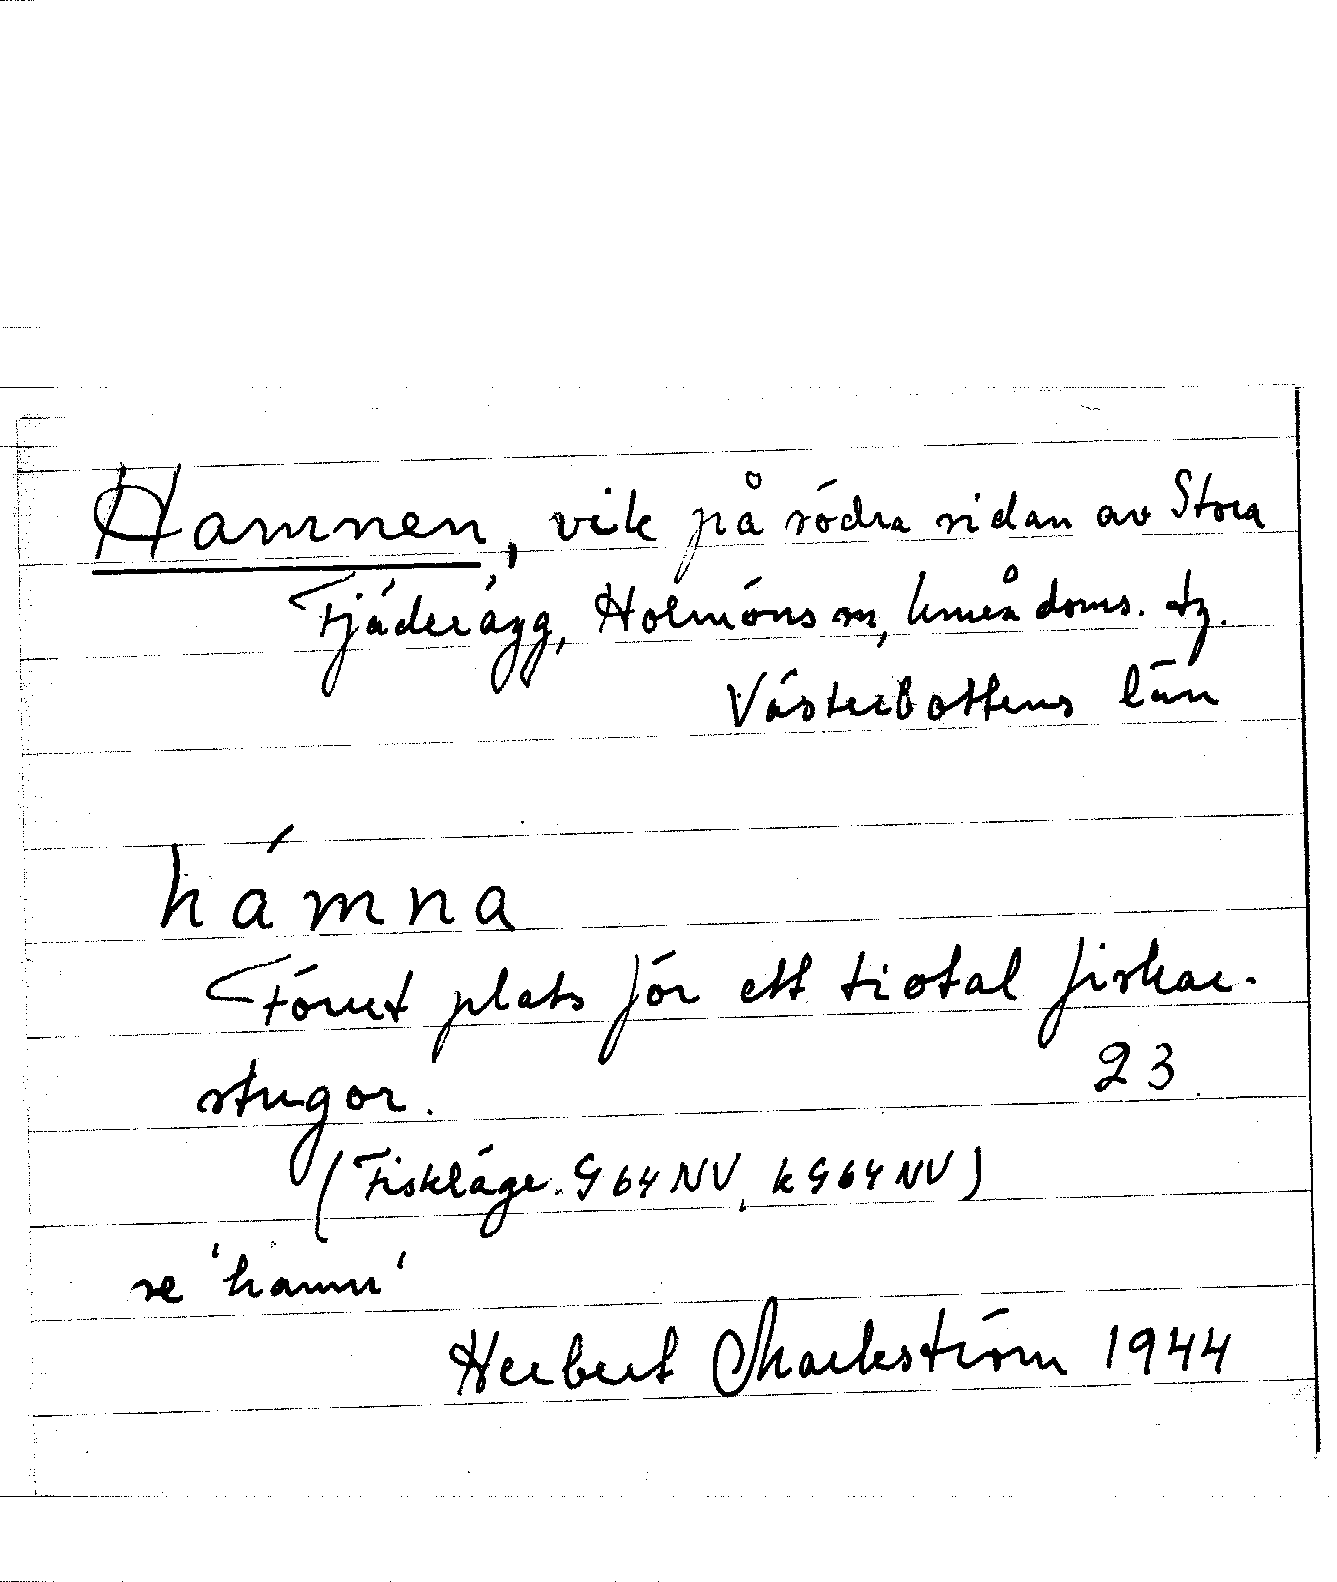 Hamnen, vik på södra sidan av Stora
Fjäderägg, Holmöns sn, Umeå doms. tg.
Västerbottens län
hámna
Förut plats för ett tiotal fiskar-
stugor. 23
(Fiskläge. G 64 NV, k G 64 NV)
se 'hamn'
Herbert Markström 1944